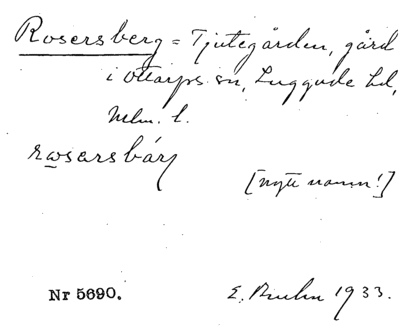 Rosersberg = Tjutegården, gård
i Ottarps sn, Luggude hd,
Mlm. l.
rosersbärj
[nytt namn!]
Nr 5690.
E. Bruhn 1933.